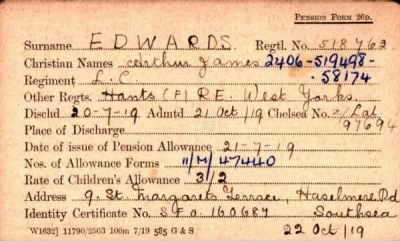 PENSION FORM 26D.
Surname EDWARDS. Regtl. No. 518762
Christian Names Arthur James 2406-519498-
Regiment L.C -58174
Other Regts. Hants (F) RE. West Yorks
Dischd 20-7-19 Admtd 21 Oct/19 Chelsea No.
Place of Discharge 97694
Date of issue of Pension Allowance 21-7-19
Nos. of Allowance Forms 11/M/47440
Rate of Children's Allowance 3/2
Address 9. St. Margarets Terrace, Haselmere Rd
Identity Certificate No. S.F.a. 160687 Southsea
W1632] 11790/2563 100m 7/19 585 G & S 22 Oct/19